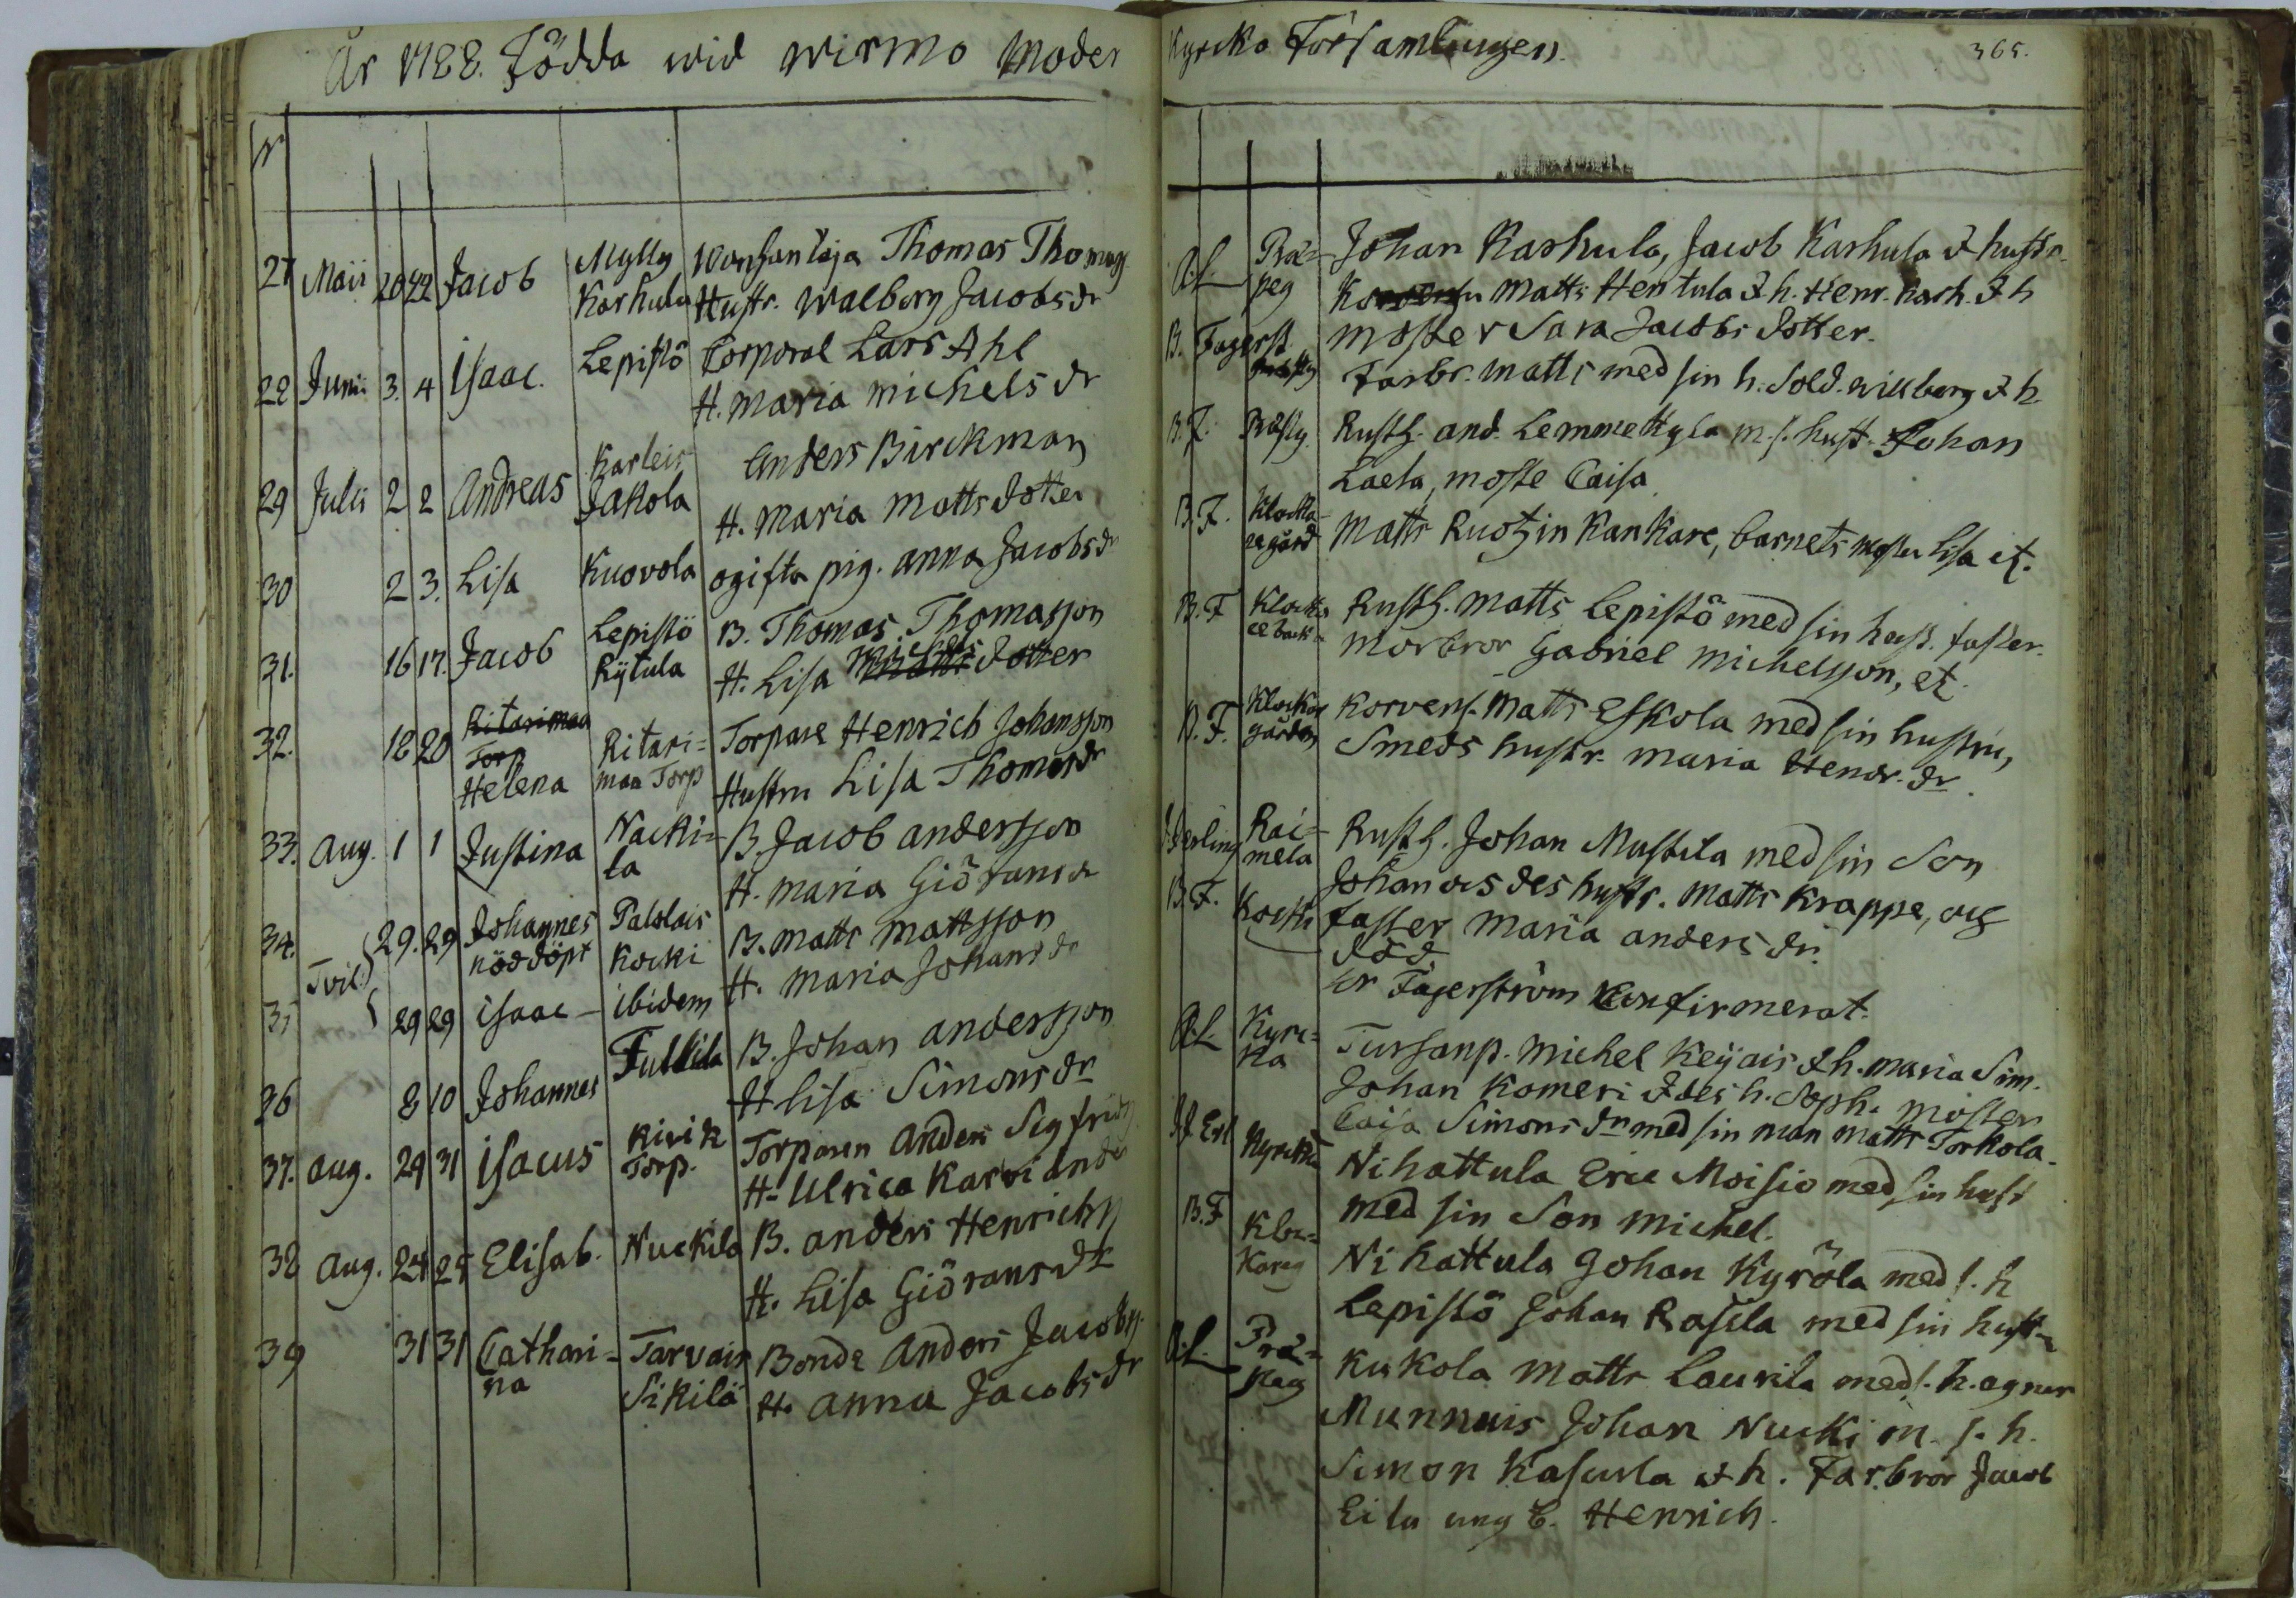 År 1788. Födda wid wirmo Moder
N
27 Maii 20 22 Jacob Mylly Thomas
Karhula Hustr. Walborg Jacobs dr
28 Junii 3. 4 Isaac. Lepistö Corporal Lars Ahl
H. Maria Michels dr
29 Julii 2 2 Andreas Karleis Anders Birckman
Jakola H. Maria Matts dotter
30 2 3. Lisa Kuovola ogifta pig. Anna Jacobs dr
31. 16 17. Jacob Lepistö B. Thomas Thomasson
Rytula H. Lisa Michels dotter
32. 18 20 Ritarimaa Torp Helena Ritari= Torpare Henrich Johansson
maa Torp Hustru Lisa Thomas dr
33. Aug. 1 1 Justina Nacki= B. Jacob Andersson
la H. Maria Giörans dr
34. 29. 29 Johannes Palolais B. Matts Mattsson
nöddöpt Kocki H. Maria Johans dr
Tvil.
35 29 29 Isaac - ibidem
36 8 10 Johannes Tullila B. Johan Andersson
H Lisa Simons dr
37. Aug. 29 31 Isacus Kivik Torparen Anders Sigfrids
Torp. H. Ulrica Karvi
38 Aug. 24 25 Elisab. Nuckila B. Anders Henrichs
H. Lisa Giörans dr
39 31 31 Cathari= Tarvais Bonde Anders Jacobs
na Sikilä H. Anna Jacobs dr
Kyrcko Församlingen. 365.
A.L. Præ= Johan Karhula, Jacob Karhula & hustr.
peg Matts Hentula & h. Henr. Karh. & h
B. Fagerst moster Sara Jacobs dotter.
Farbr. Matts med sin h. Sold. Willberg & h.
B.F. Rusth. And. Lemmettyla m. s. hust. Johan
Laela, moste Caisa
B.F. Klocka= Matts Ruohin Kankare, barnets moster Lisa etc.
regård
B.F Klocka Rusth. Matts Lepistö med sin hust. faster.
re back= Morbror Gabriel Michelsson, etc.
B.F. Klockar Korvens. Matts Eskola med sin hustru,
gården Smeds hustr. Maria Hendr. dr.
Rai= Rusth. Johan Mustela med sin Son
mela Johan och des hustr. Matts Krappe, och
B.F. Kocki faster Maria Anders dr.
död
hr Fagerström Confirmerat.
A.L Kyrc= Tursanp. Michel Keijais & h. Maria Sim.
ka Johan Komeri & des h. Soph. moster
Caisa Simons dr med sin man Matts Torkola.
Kyrckia Nihattula Eric Moisio med sin hust
med sin Son Michel.
B.F Kloc= Nihattula Johan Kyrölä med s. h
kareg Lepistö Johan Rasila med sin hustr
A.L. Præ= Kukola Matts Laurila med s. h. Agnes
peg Munnuis Johan Nucki m. s. h.
Simon Kasurla & h. Farbror Jacob
Eila ung b. Henrich.